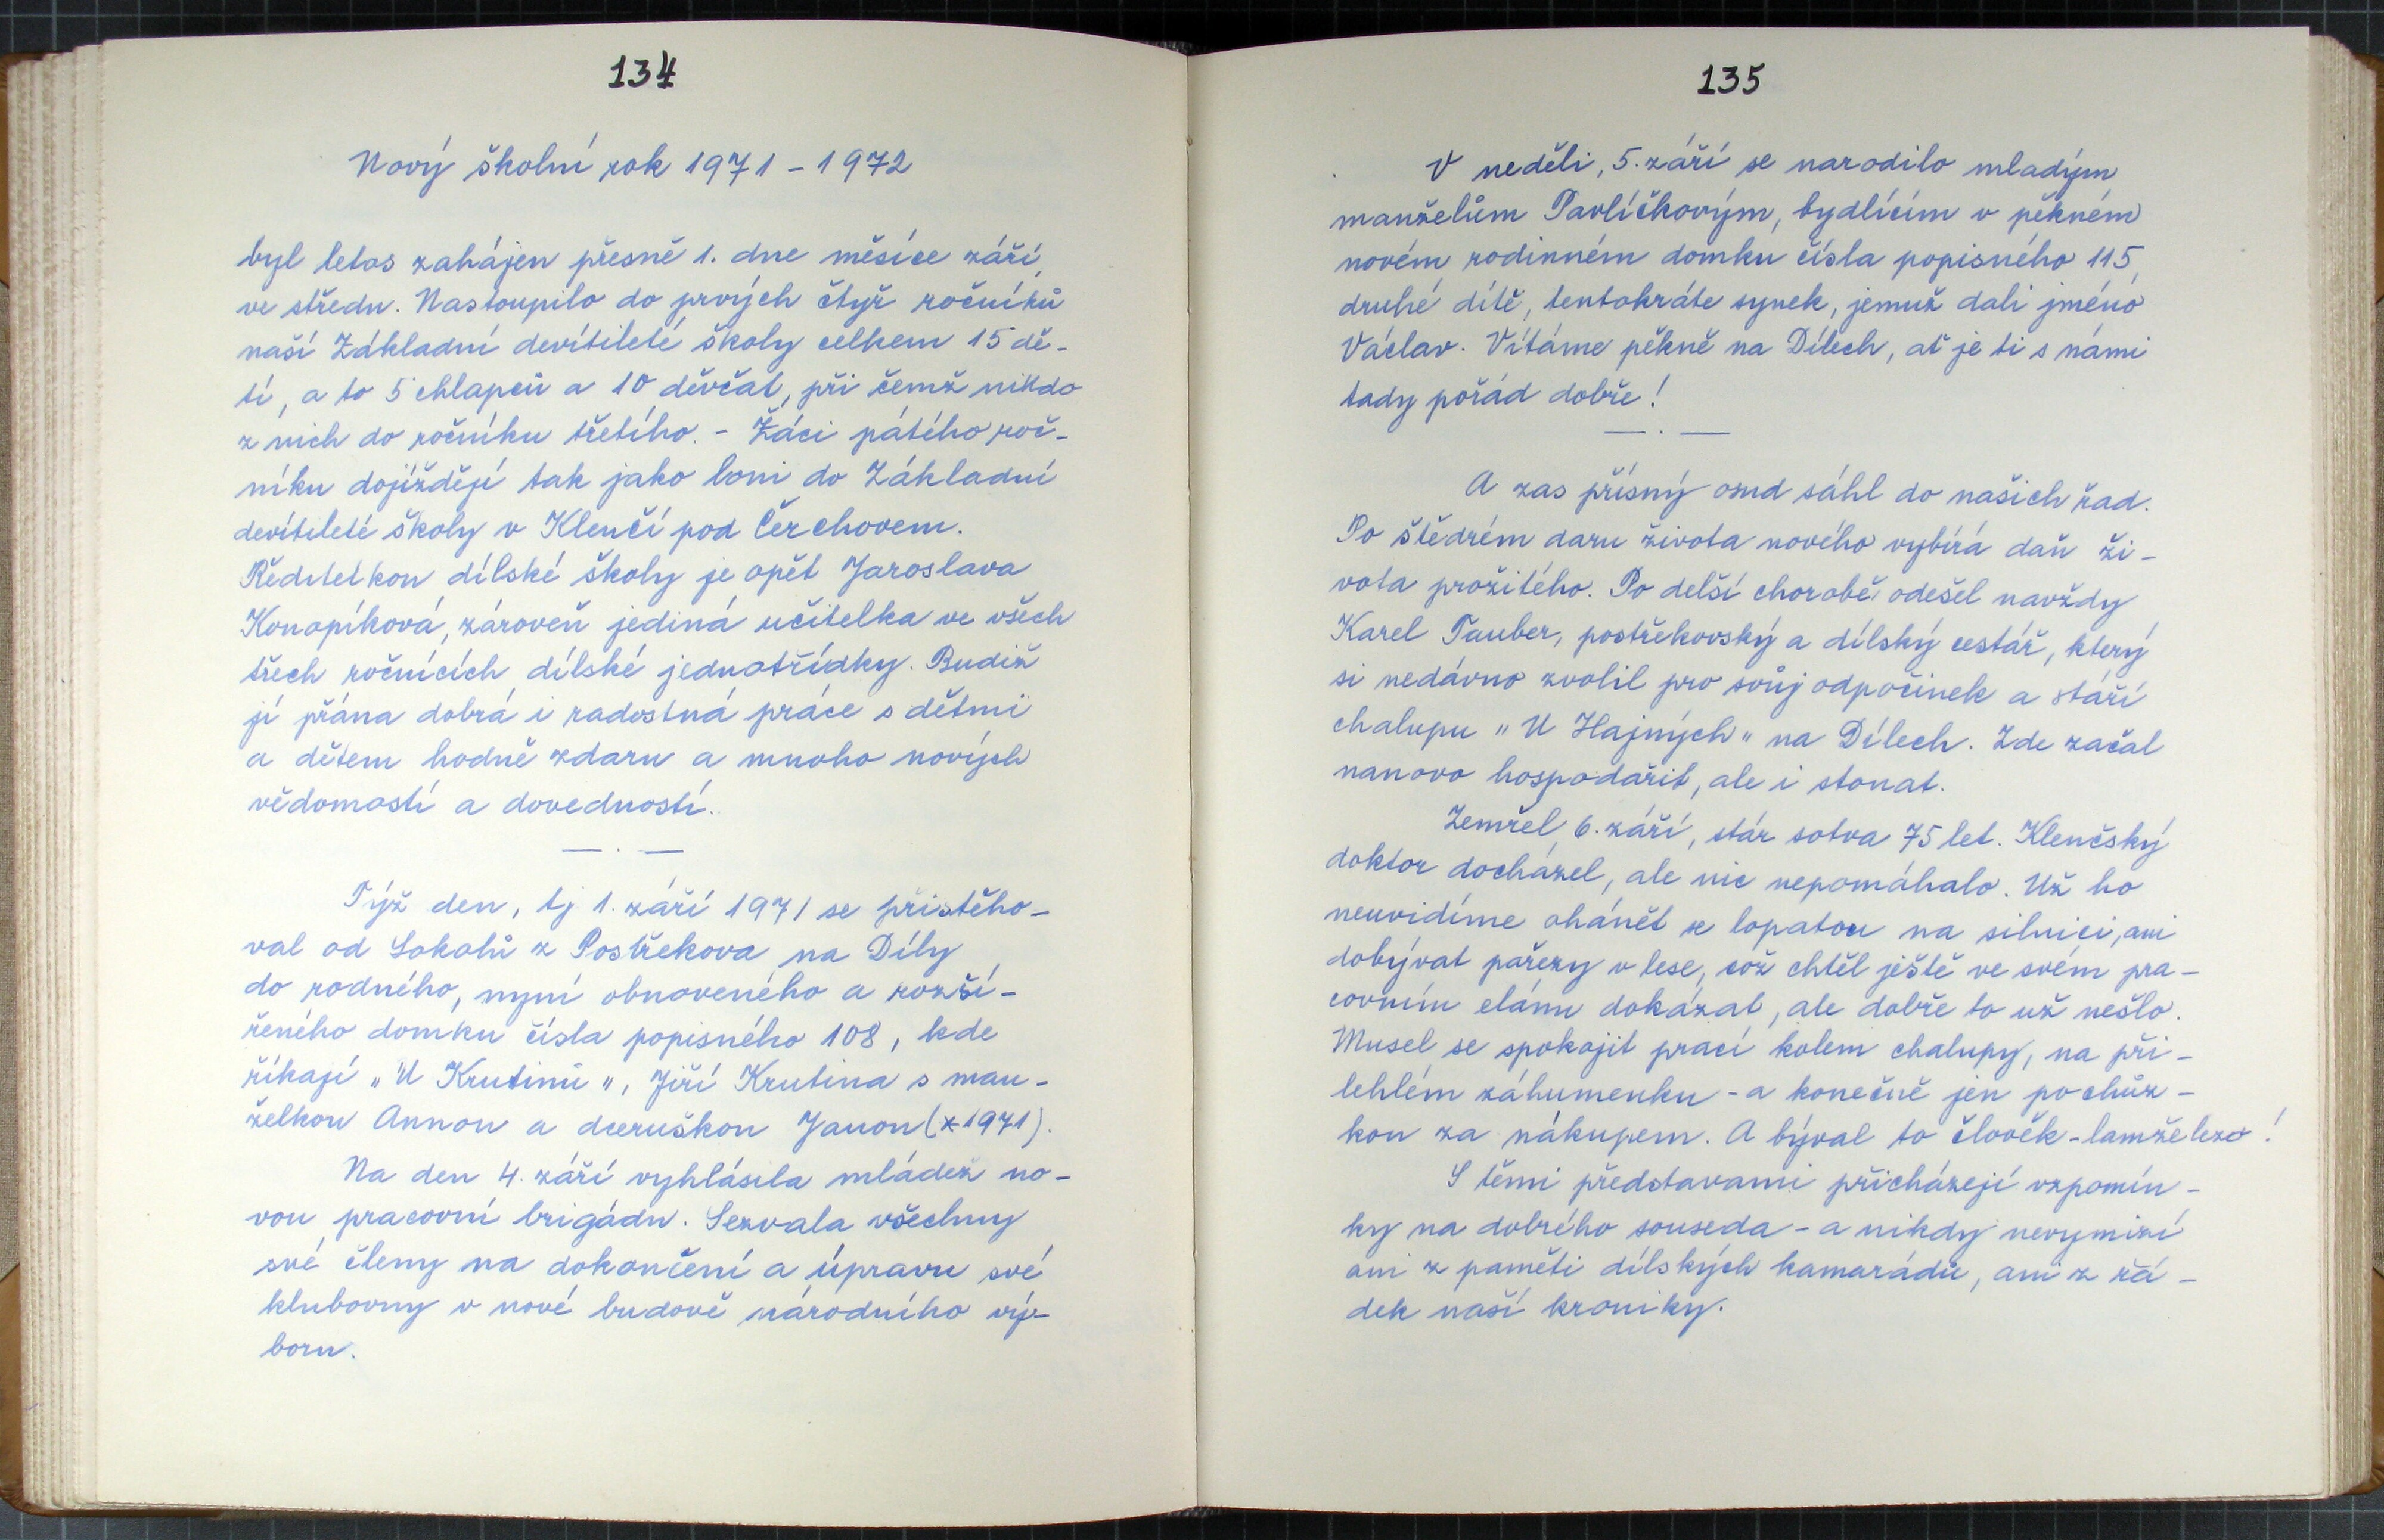 134
Nový školní rok 1971 - 1972
byl letos zahájen přesně 1. dne měsíce září,
ve středu. Nastoupilo do prvých čtyř ročníků
naší Základní devítileté školy celkem 15 dě-
tí, a to 5 chlapců a 10 děvčat, při čemž nikdo
z nich do ročníku třetího. - Žáci pátého roč-
níku dojíždějí tak jako loni do Základní
devítileté školy v Klenčí pod Čerchovem.
Ředitelkou dílské školy je opět Jaroslava
Konopíková, zároveň jediná učitelka ve všech
třech ročnících dílské jednotřídky. Budiž
jí přána dobrá i radostná práce s dětmi
a dětem hodně zdaru a mnoho nových
vědomostí a dovedností.
— . —
Týž den, tj 1. září 1971 se přistěho-
val od Sokolů z Postřekova na Díly
do rodného, nyní obnoveného a rozší-
řeného domku čísla popisného 108, kde
říkají „U Krutinů", Jiří Krutina s man-
želkou Annou a dceruškou Janou (*1971).
Na den 4. září vyhlásila mládež no-
vou pracovní brigádu. Sezvala všechny
své členy na dokončení a úpravu své
klubovny v nové budově národního vý-
boru.
135
V neděli, 5. září se narodilo mladým
manželům Pavlíčkovým, bydlícím v pěkném
novém rodinném domku čísla popisného 115,
druhé dítě, tentokráte synek, jemuž dali jméno
Václav. Vítáme pěkně na Dílech, ať je ti s námi
tady pořád dobře!
— . —
A zas přísný osud sáhl do našich řad.
Po štědrém daru života nového vybírá daň ži-
vota prožitého. Po delší chorobě odešel navždy
Karel Tauber, postřekovský a dílský cestář, který
si nedávno zvolil pro svůj odpočinek a stáří
chalupu „U Hajných" na Dílech. Zde začal
nanovo hospodařit, ale i stonat.
Zemřel 6. září, stár sotva 75 let. Klenčský
doktor docházel, ale nic nepomáhalo. Už ho
neuvidíme ohánět se lopatou na silnici, ani
dobývat pařezy v lese, což chtěl ještě ve svém pra-
covním elánu dokázat, ale dobře to už nešlo.
Musel se spokojit prací kolem chalupy, na při-
lehlém záhumenku - a konečně jen pochůz-
kou za nákupem. A býval to člověk-lamželezo!
S těmi představami přicházejí vzpomín-
ky na dobrého souseda - a nikdy nevymizí
ani z paměti dílských kamarádů, ani z řá-
dek naší kroniky.